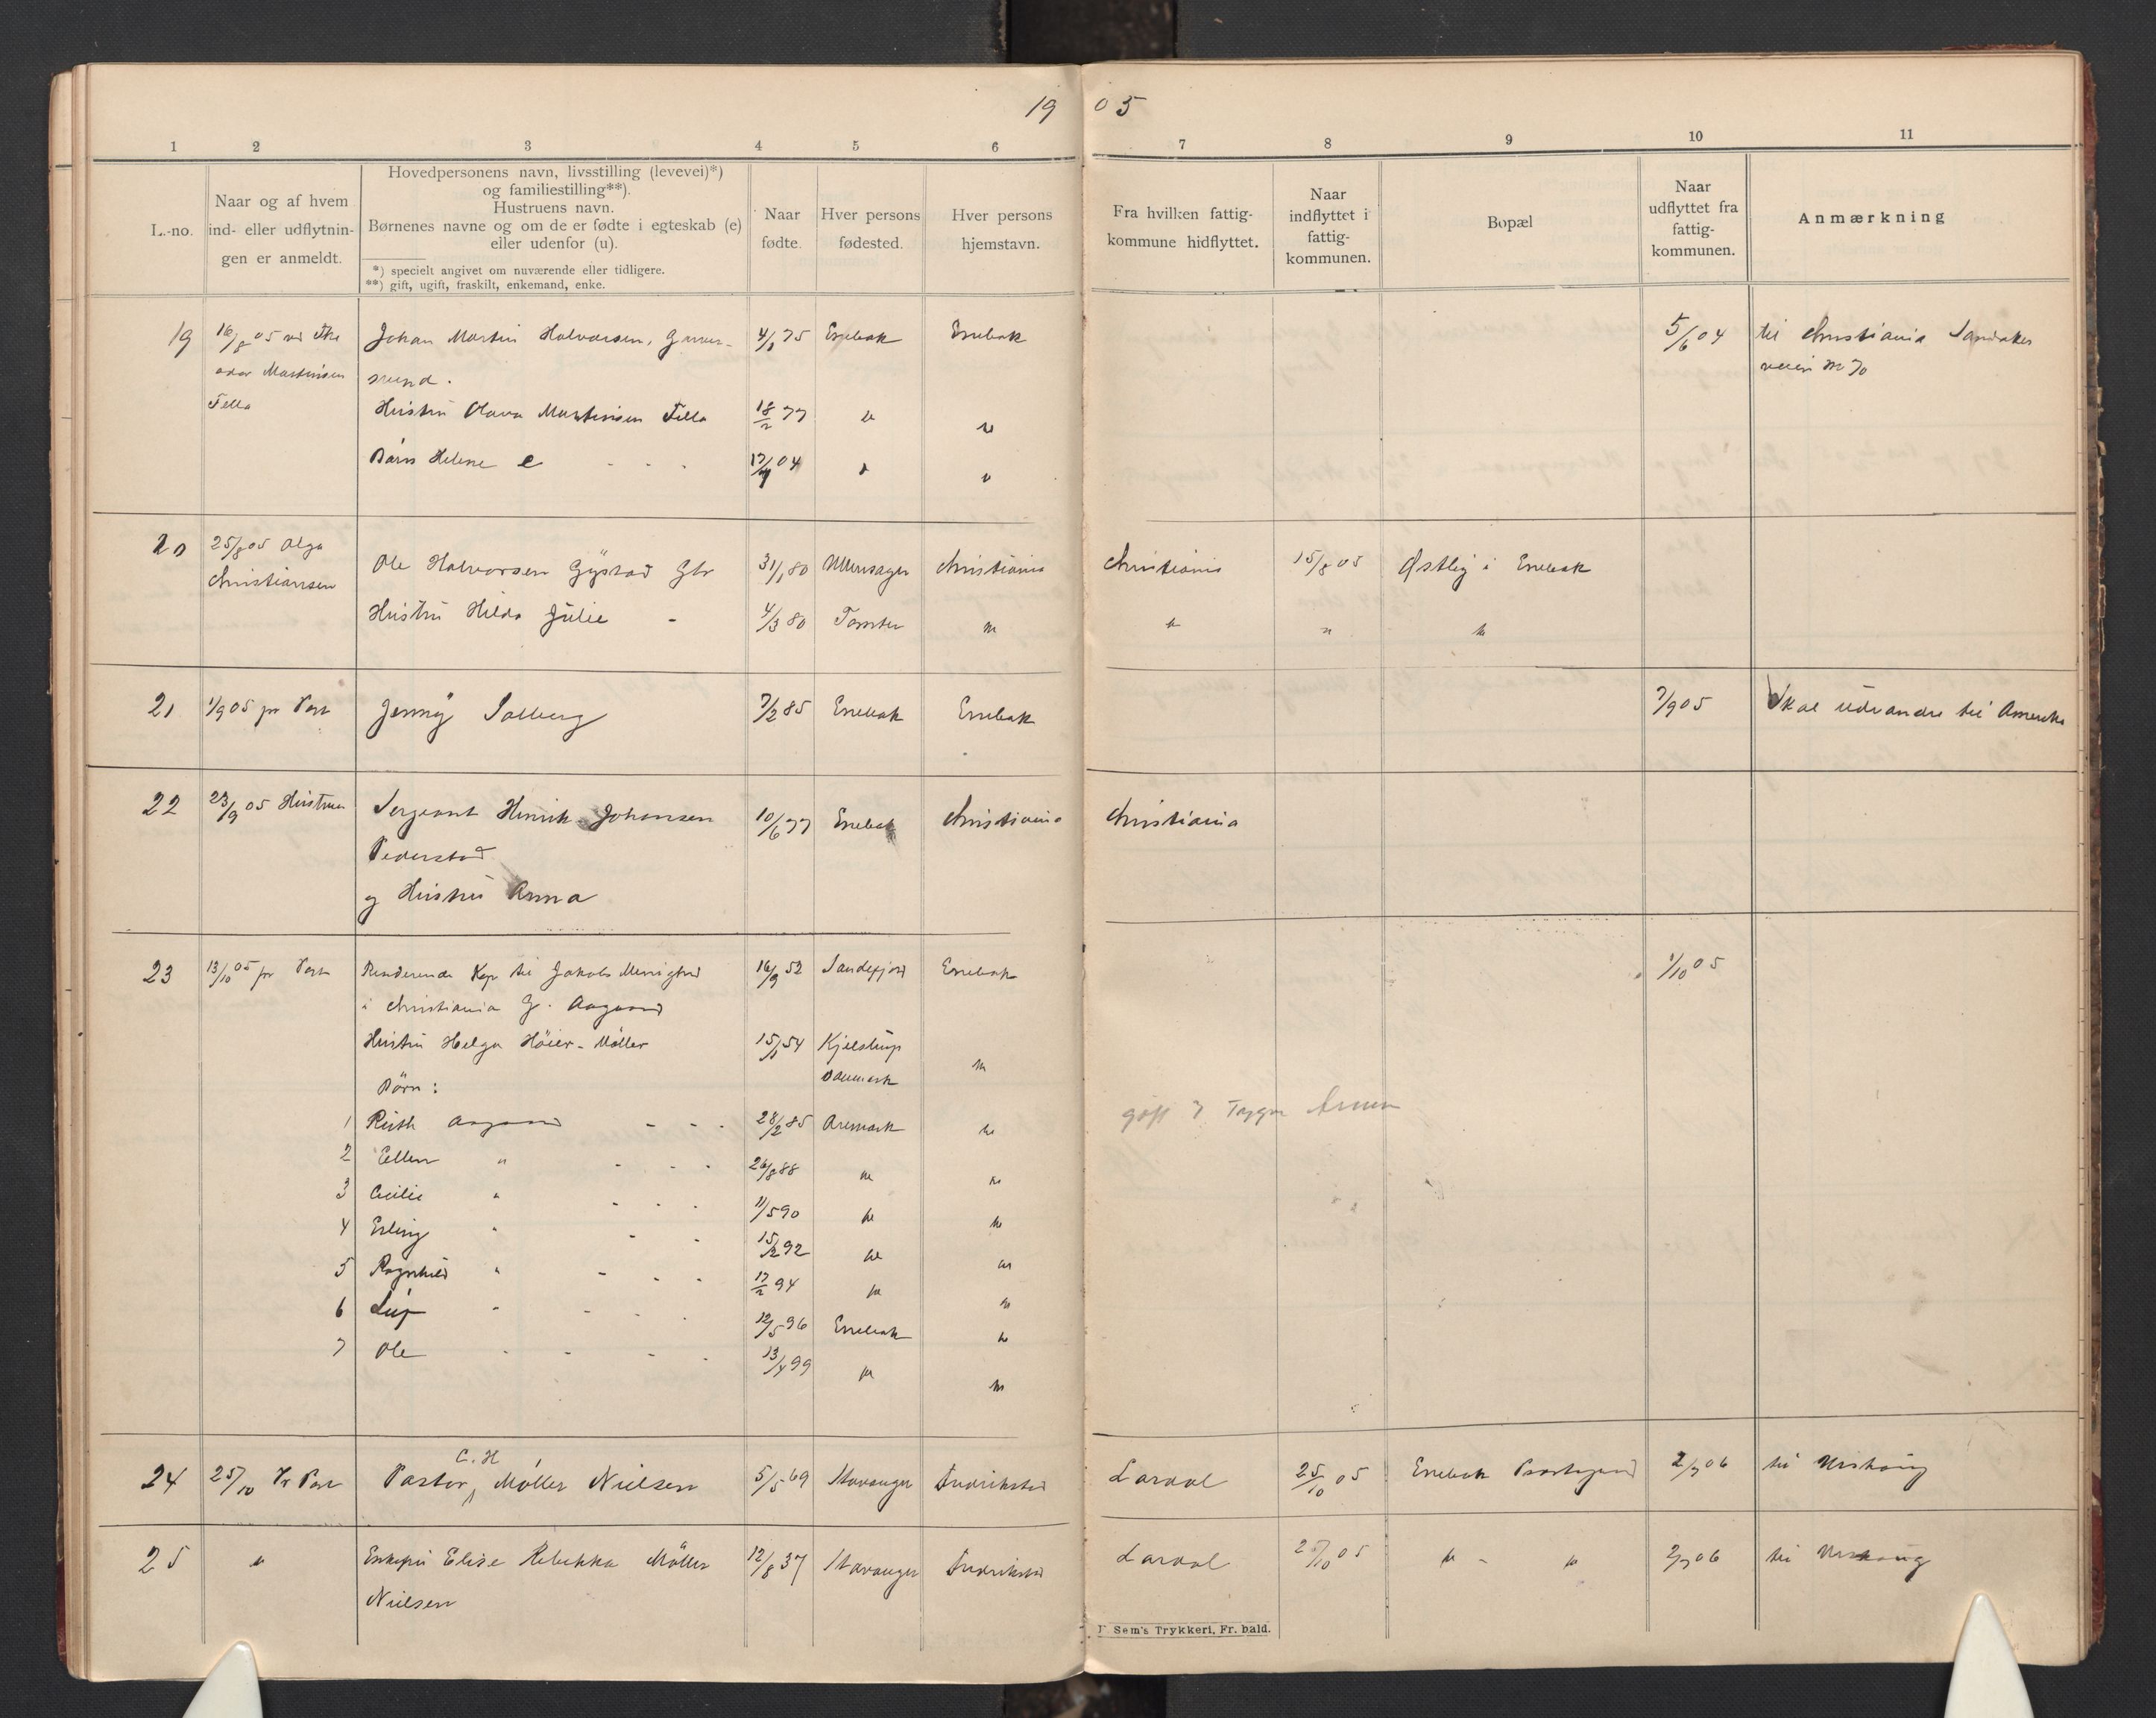 19 05
1 2 3 4 5 6 7 8 9 10 11
L.-no.
Naar og af hvem
ind- eller udflytnin-
gen er anmeldt.
Hovedpersonens navn, livsstilling (levevei)*)
og familiestilling**).
Hustruens navn.
Børnenes navne og om de er fødte i egteskab (e)
eller udenfor (u).
*) specielt angivet om nuværende eller tidligere.
**) gift, ugift, fraskilt, enkemand, enke.
Naar
fødte.
Hver persons
fødested.
Hver persons
hjemstavn.
Fra hvilken fattig-
kommune hidflyttet.
Naar
indflyttet i
fattig-
kommunen.
Bopæl
Naar
udflyttet fra
fattig-
kommunen.
Anmærkning
19 16/8 05 Johan Martin Halvorsen, 4/1 75 Enebak Enebak 5/6 04 til Christiania Sandaker
odor Martinsen veien No 70
Fella Hustru Olava Martinsen Fella 18/2 77 " "
Barn Helene e - - - 17/4 04 " "
20 25/8 05 Olga
Christiansen Ole Halvorsen Gystad Gbr 31/1 80 Ullensager Christiania Christiania 15/8 05 Østby i Enebak
Hustru Hilda Julie - 4/3 80 Tomter " " " "
21 1/9 05 pr Post Jenny Solberg 7/2 85 Enebak Enebak 7/9 05 Skal udvandre til Amerika
22 23/9 05 Hustruen Sergeant Henrik Johansen 10/6 77 Enebak Christiania Christiania
Pederstad
og Hustru Anna
23 13/10 05 pr Post Residerende Kap til Jakobs Menighed 16/9 52 Sandefjord Enebak 1/10 05
i Christiania G. Aagaard
Hustru Helga Höier-Möller 15/1 54 Kjelstrup "
Danmark
Börn:
1 Ruth Aagaard - - - 28/2 85 Aremark "
2 Ellen " - - - 26/8 88 " "
3 Cecilie " - - - 11/5 90 " "
4 Erling " - - 15/2 92 " "
5 Ragnhild " - - - 17/2 94 " "
6 Leif " - - - 12/5 96 Enebak "
7 Ole - - - - 13/4 99 " "
C. H
24 25/10 Pr Post Pastor Möller Nielsen 5/5 69 Stavanger Fredrikstad Lardal 25/10 05 Enebak Præstegaard 2/7 06 til Urskoug
25 " Enkefru Elise Rebekka Möller 12/8 37 Stavanger Fredrikstad Lardal 25/10 05 " - " 2/7 06 til Urskoug
Nielsen
Sem's Trykkeri, Fr. hald.